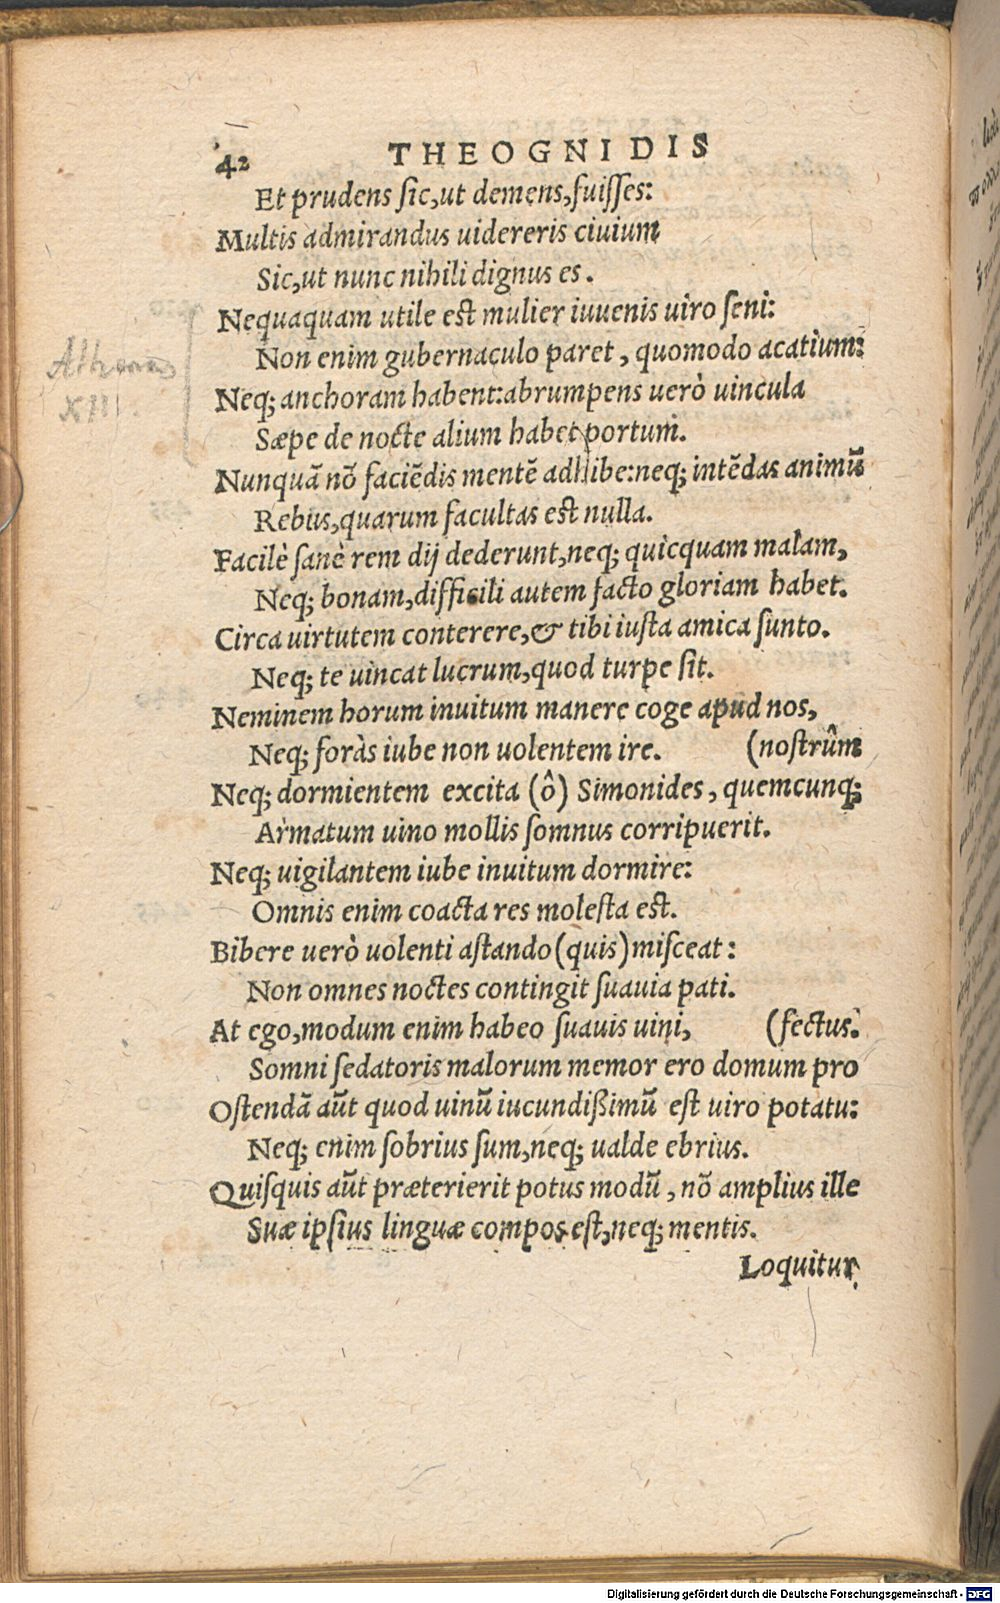 42 THEOGNIDIS
Et prudens sic,ut demens,fuisses:
Multis admirandus uidereris ciuium
Sic,ut nunc nihili dignus es.
Nequaquam utile est mulier iuuenis uiro seni:
Non enim gubernaculo paret, quomodo acatium:
Neq; anchoram habent:abrumpens uerò uincula
Sæpe de nocte alium habet portum.
Atheneus
XIII.
Nunquã nõ faciẽdis mentẽ adhibe:neq; intẽdas animũ
Rebus,quarum facultas est nulla.
Facilè sanè rem dij dederunt,neq; quicquam malam,
Neq; bonam,difficili autem facto gloriam habet.
Circa uirtutem conterere,& tibi iusta amica sunto.
Neq; te uincat lucrum,quod turpe sit.
Neminem horum inuitum manere coge apud nos,
Neq; foràs iube non uolentem ire. (nostrûm
Neq; dormientem excita (ô) Simonides, quemcunq;
Armatum uino mollis somnus corripuerit.
Neq; uigilantem iube inuitum dormire:
Omnis enim coacta res molesta est.
Bibere uerò uolenti astando(quis)misceat:
Non omnes noctes contingit suauia pati.
At ego,modum enim habeo suauis uini, (fectus.
Somni sedatoris malorum memor ero domum pro
Ostendã aũt quod uinũ iucundißimũ est uiro potatu:
Neq; enim sobrius sum,neq; ualde ebrius.
Quisquis aũt præterierit potus modũ, nõ amplius ille
Suæ ipsius linguæ compos est,neq; mentis.
Loquitur
Digitalisierung gefördert durch die Deutsche Forschungsgemeinschaft - DFG